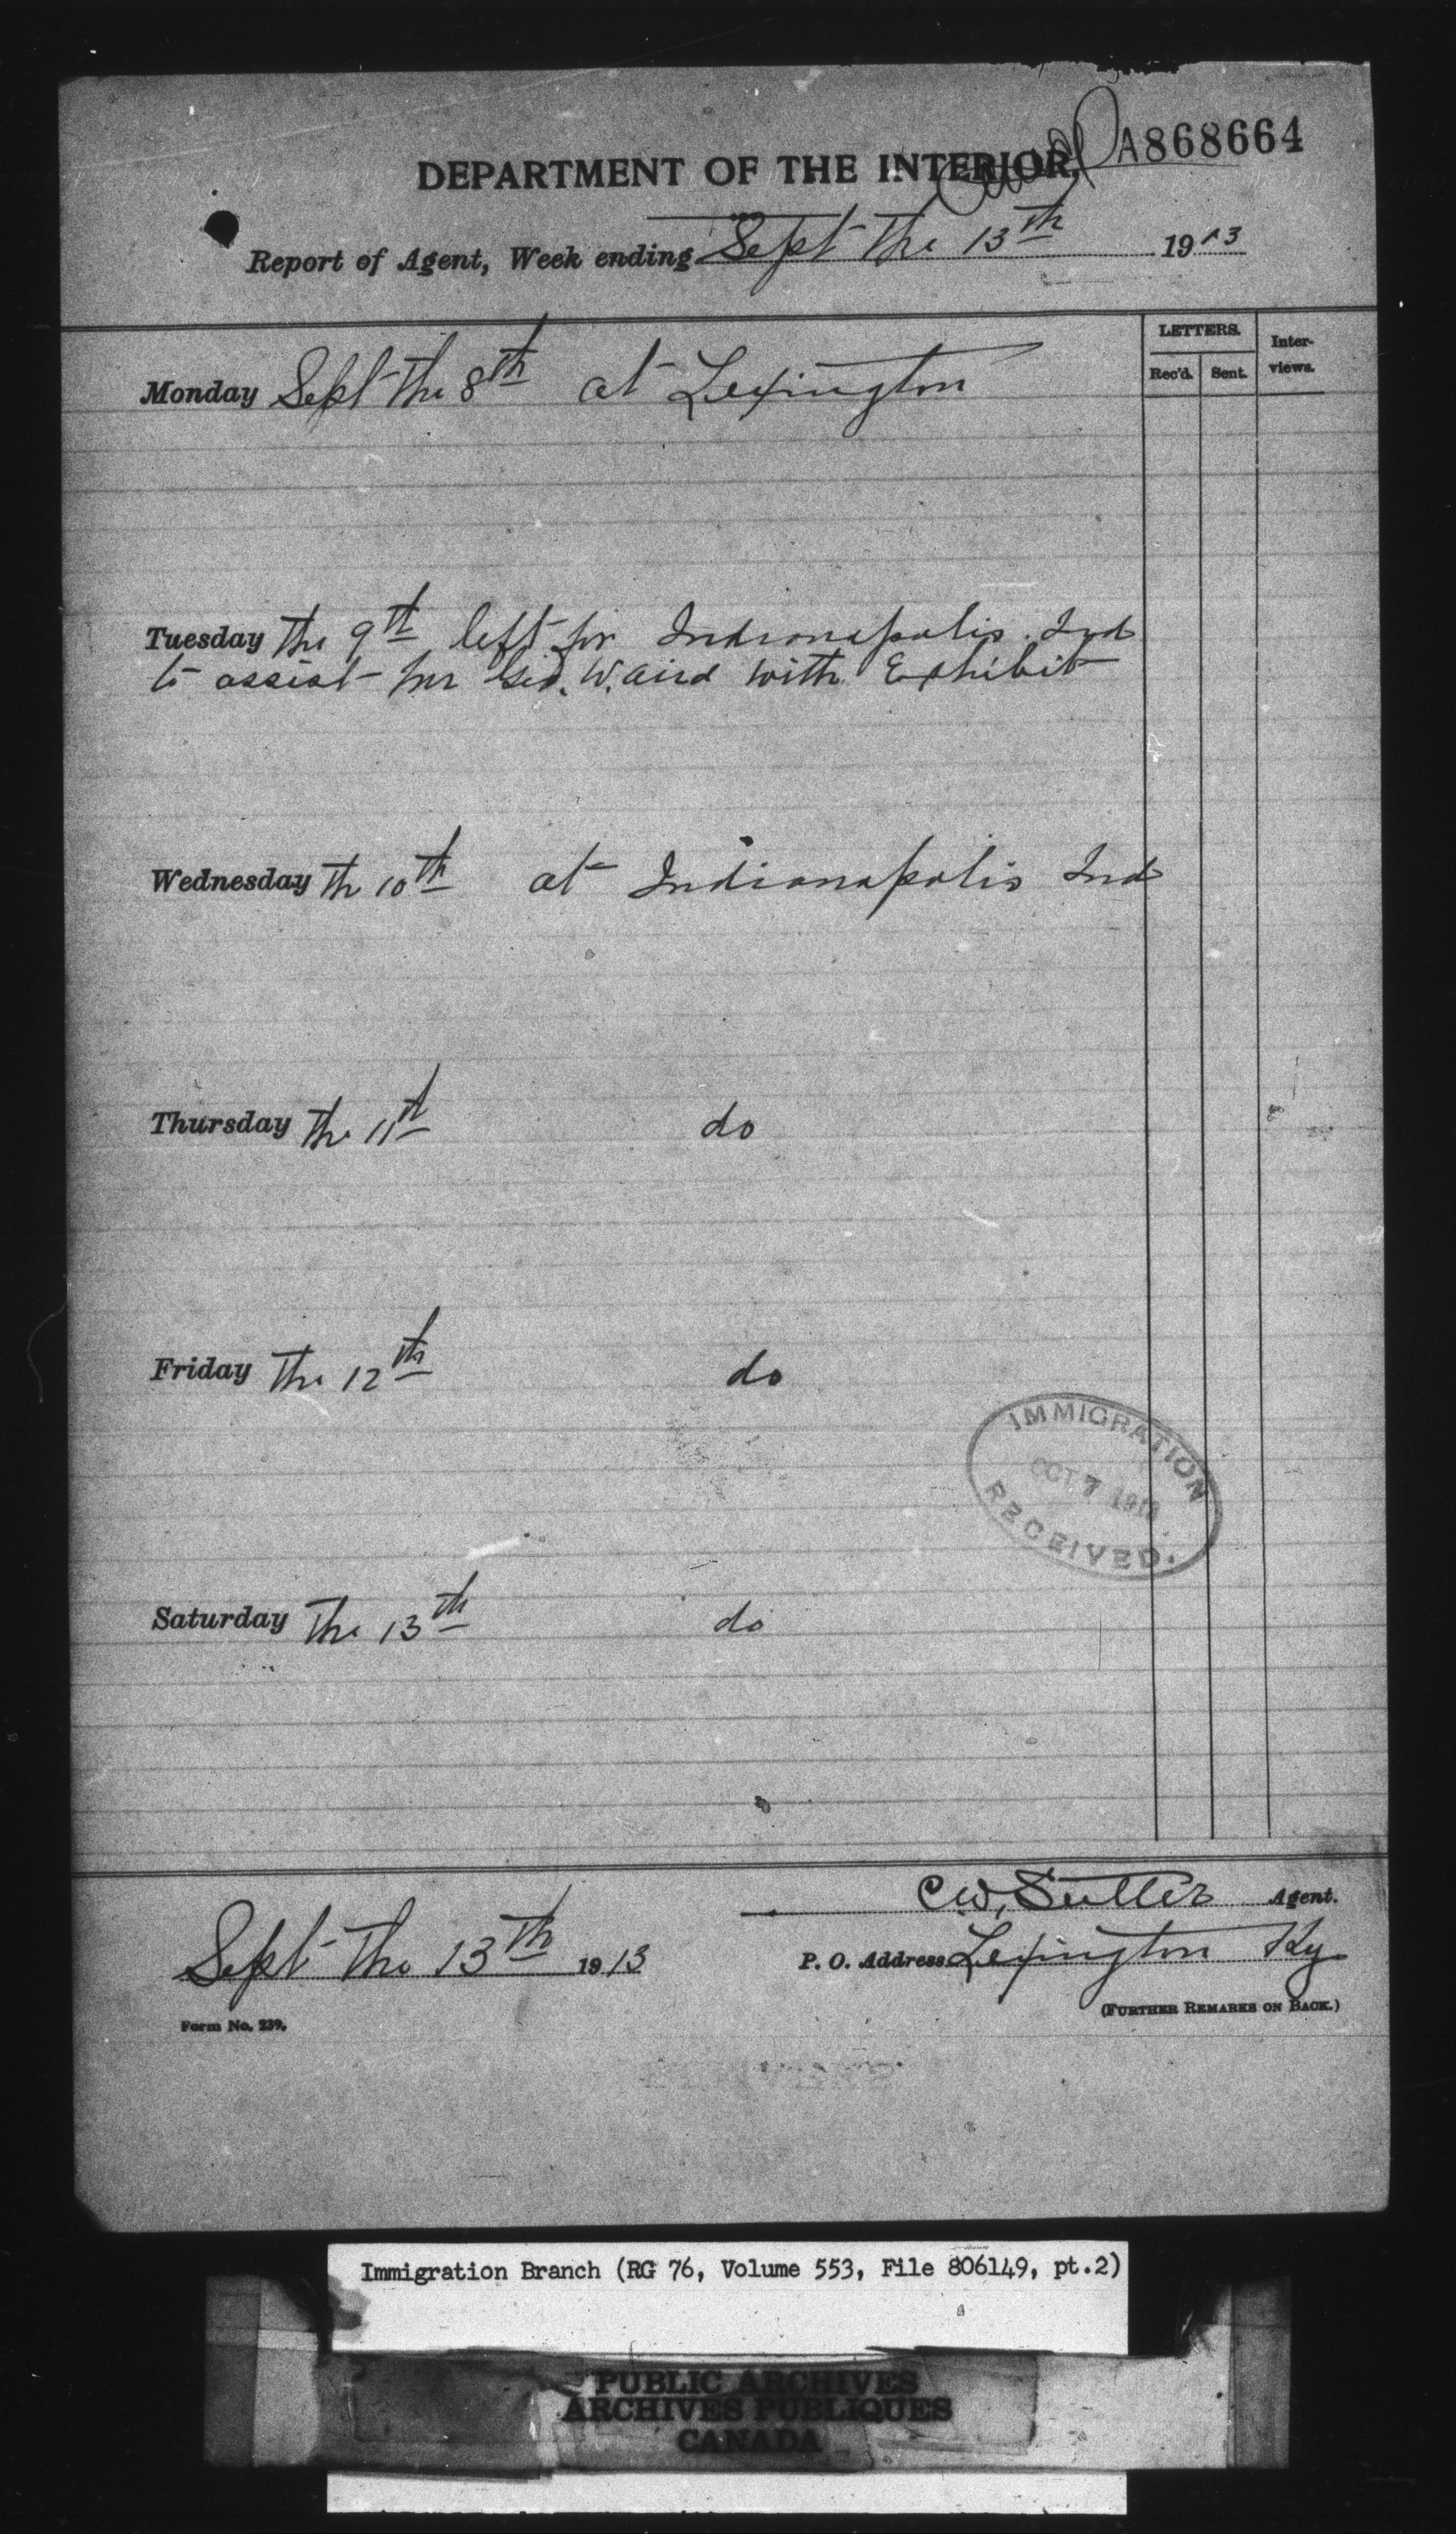 A868664
DEPARTMENT OF THE INTERIOR.
Report of Agent, Week ending Sept the 13th 1913
LETTERS.
Inter-
views.
Rec'd. Sent.
Monday Sept the 8th at Lexington
Tuesday the 9th left for Indianapolis. Ind
to assist Mr Geo. W. Aird with Exhibit
Wednesday the 10th at Indianapolis Ind
Thursday the 11th do
Friday the 12th do
IMMIGRATION
OCT 7 1913
RECEIVED.
Saturday the 13th do
C.W. Sutter Agent.
Sept the 13th 1913
P. O. Address Lexington Ky
(FURTHER REMARKS ON BACK.)
Form No. 239.
Immigration Branch (RG 76, Volume 553, File 806149, pt.2)
PUBLIC ARCHIVES
ARCHIVES PUBLIQUES
CANADA